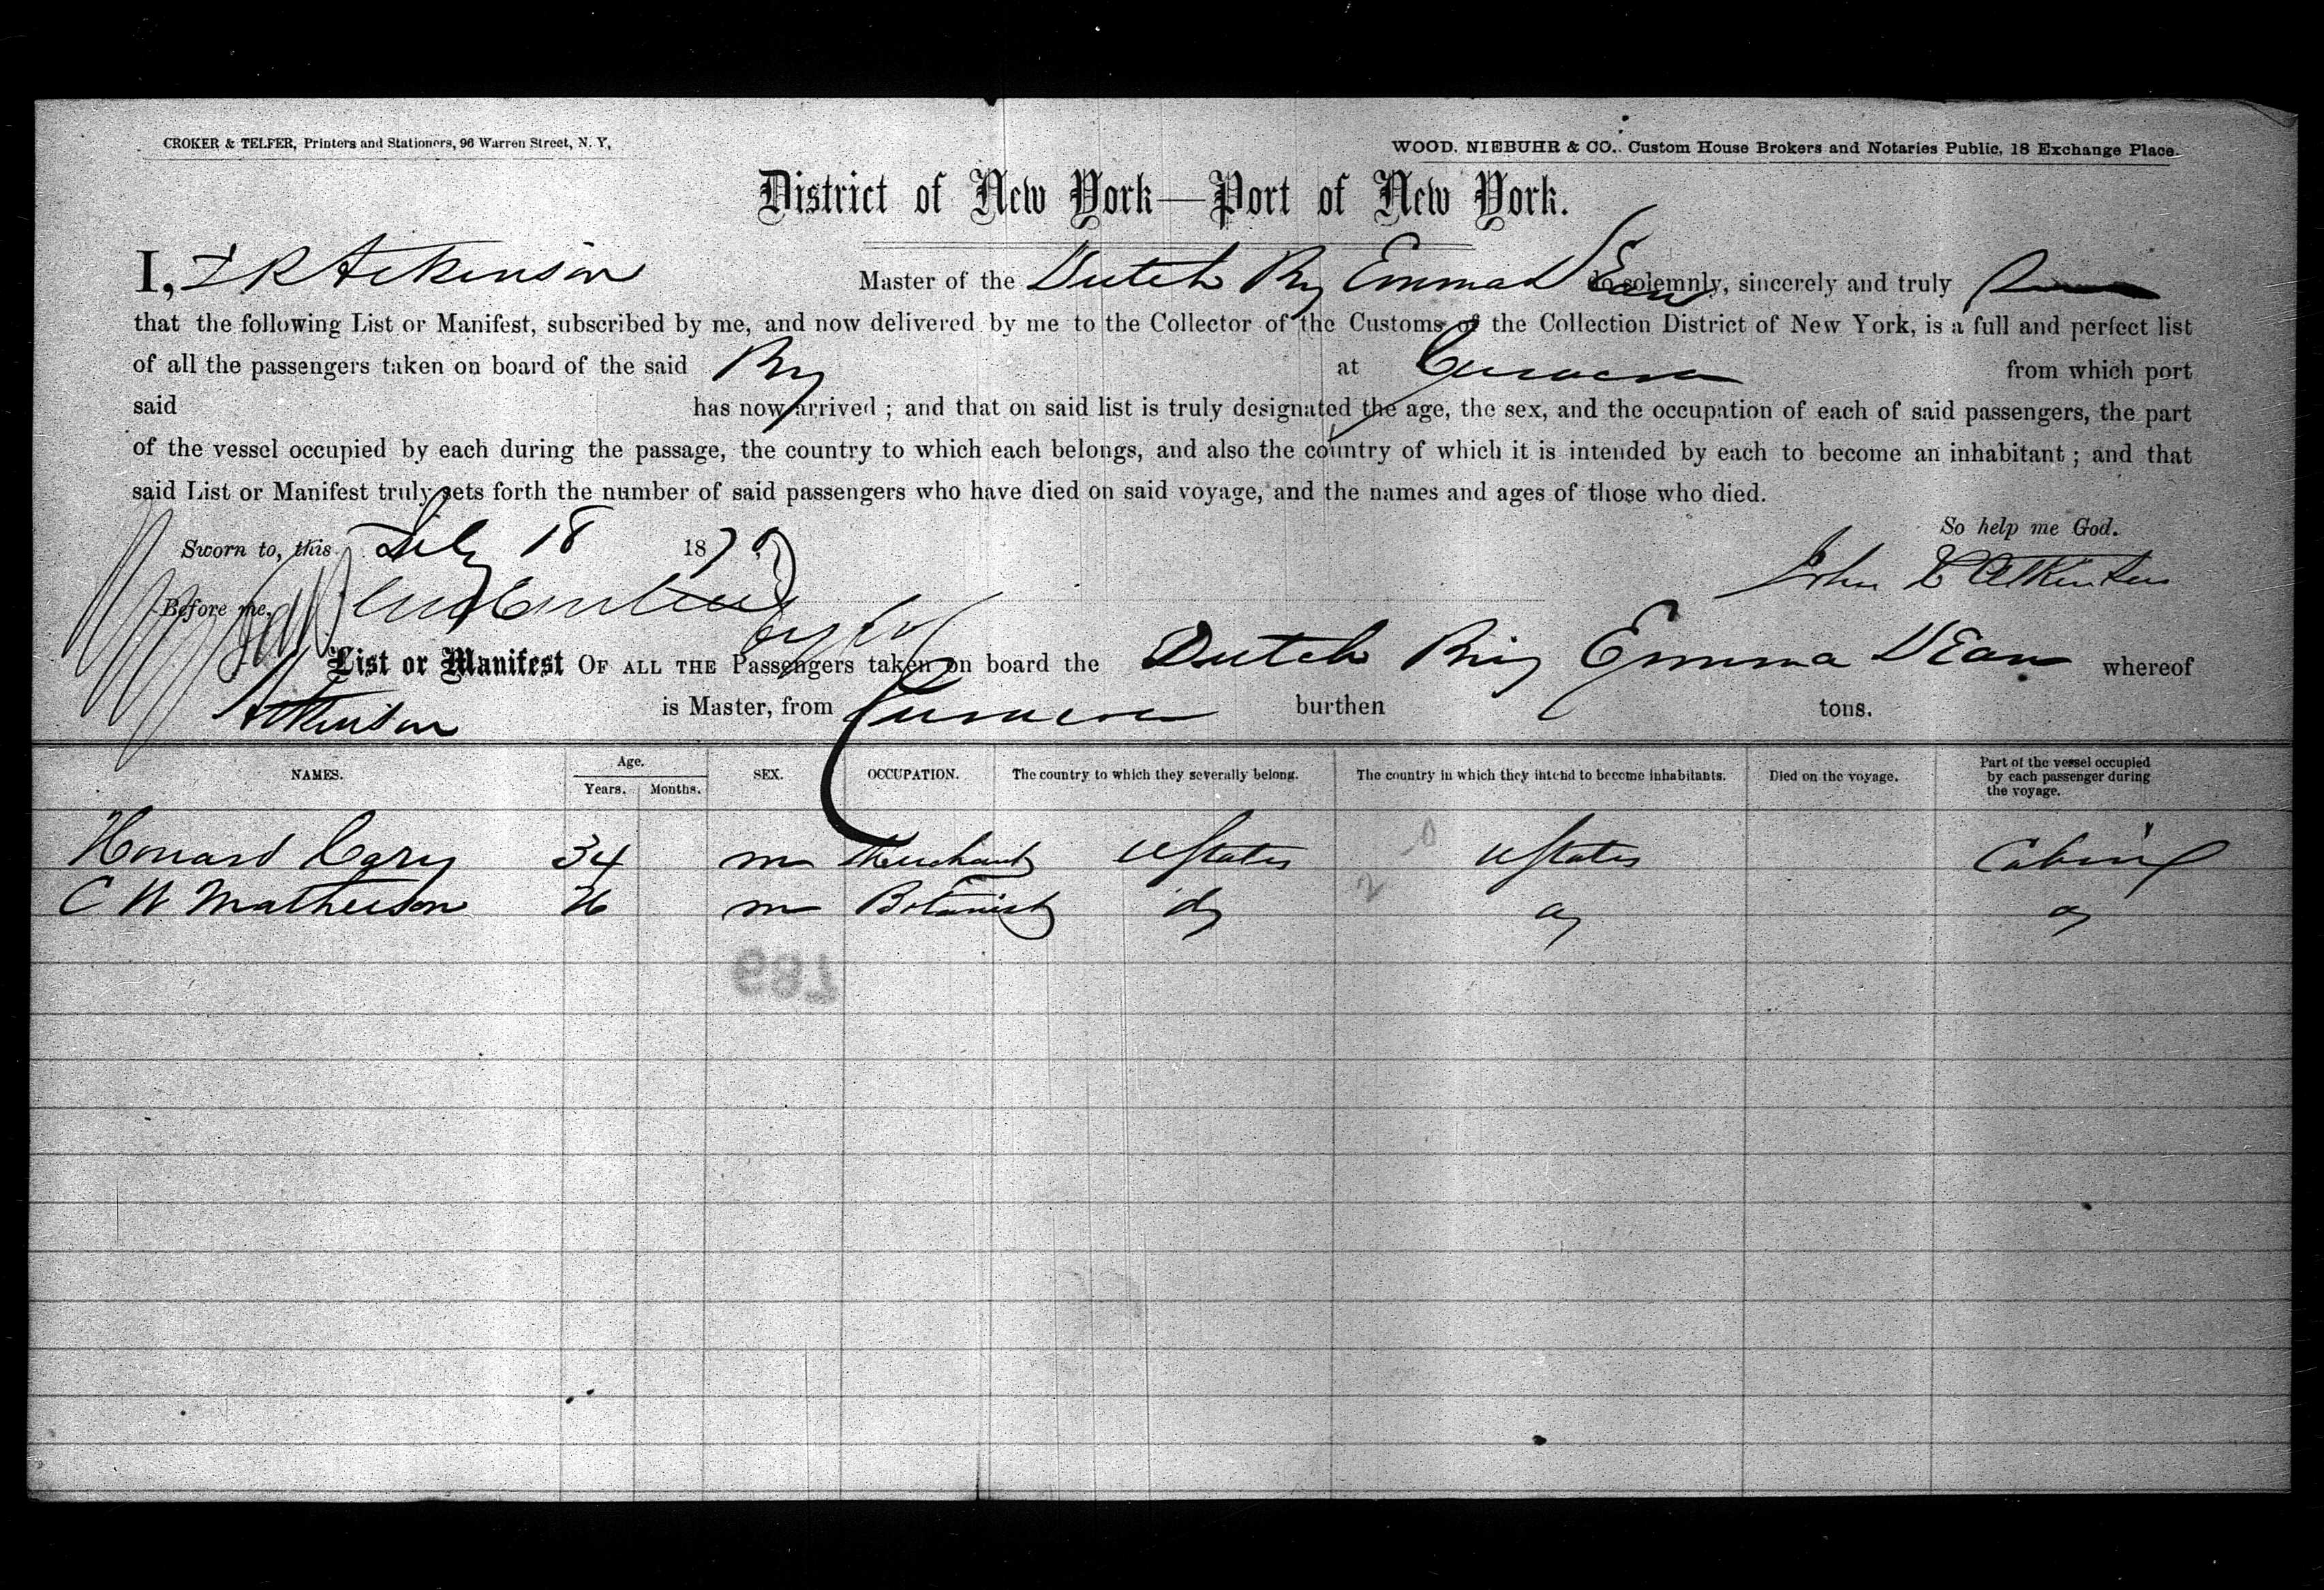 CROKER & TELFER, Printers and Stationers, 96 Warren Street, N. Y,
WOOD, NIEBUHR & CO., Custom House Brokers and Notaries Public, 18 Exchange Place.
District of New York—Port of New York.
I, Atkinson Master of the Dutch Brig Emma Dean do solemnly, sincerely and truly
that the following List or Manifest, subscribed by me, and now delivered by me to the Collector of the Customs of the Collection District of New York, is a full and perfect list
of all the passengers taken on board of the said Brig at Curacoa from which port
said has now arrived ; and that on said list is truly designated the age, the sex, and the occupation of each of said passengers, the part
of the vessel occupied by each during the passage, the country to which each belongs, and also the country of which it is intended by each to become an inhabitant ; and that
said List or Manifest truly sets forth the number of said passengers who have died on said voyage, and the names and ages of those who died.
So help me God.
Sworn to, this July 18 187
John Atkinson
Before me,
List or Manifest OF ALL THE Passengers taken on board the Dutch Brig Emma Dean whereof
Atkinson is Master, from Curacoa burthen tons.
NAMES. Age. Years. Months. SEX. OCCUPATION. The country to which they severally belong. The country in which they intend to become inhabitants. Died on the voyage. Part of the vessel occupied by each passenger during the voyage.
Howard Cary 34 m Merchant UStates UStates Cabin
C W Matheeson 26 m Botanist do do do